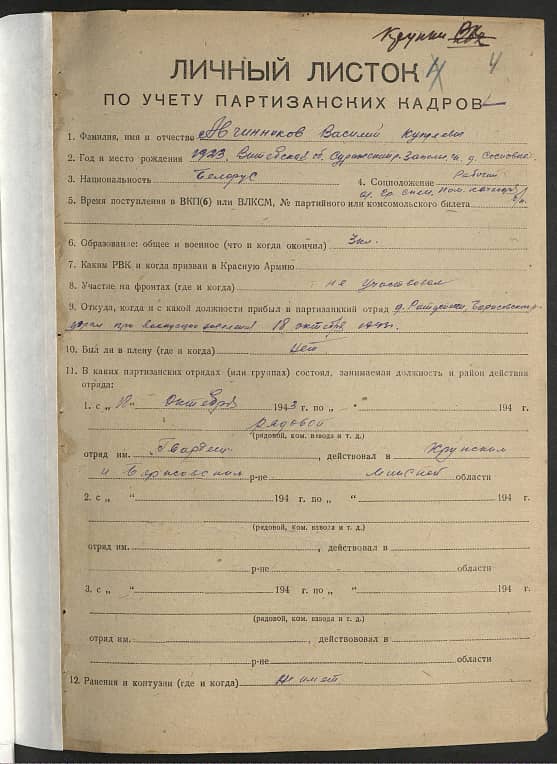 4
ЛИЧНЫЙ ЛИСТОК
ПО УЧЕТУ ПАРТИЗАНСКИХ КАДРОВ
1. Фамилия, имя и отчество Авчинников Василий
2. Год и место рождения 1923, Витебская об. д. Сосновка
3. Национальность Белорус 4. Соцположение Рабочий
5. Время поступления в ВКП(б) или ВЛКСМ, № партийного или комсомольского билета б/п.
6. Образование: общее и военное (что и когда окончил) 3 кл.
7. Каким РВК и когда призван в Красную Армию
8. Участие на фронтах (где и когда) не участвовал
9. Откуда, когда и с какой должности прибыл в партизанский отряд д.
18 октября
10. Был ли в плену (где и когда) нет
11. В каких партизанских отрядах (или группах) состоял, занимаемая должность и район действия
отряда:
1. с „ “ октября 1943 г. по „ “ 194 г.
рядовой
(рядовой, ком. взвода и т. д.)
отряд им. , действовал в Крупском
и Борисовском р-не Минской области
2. с „ “ 194 г. по „ “ 194 г.
(рядовой, ком. взвода и т. д.)
отряд им. , действовал в
р-не области
3. с „ “ 194 г. по „ “ 194 г.
(рядовой, ком. взвода и т. д.)
отряд им. , действововал в
р-не области
12. Ранения и контузии (где и когда) Не имет